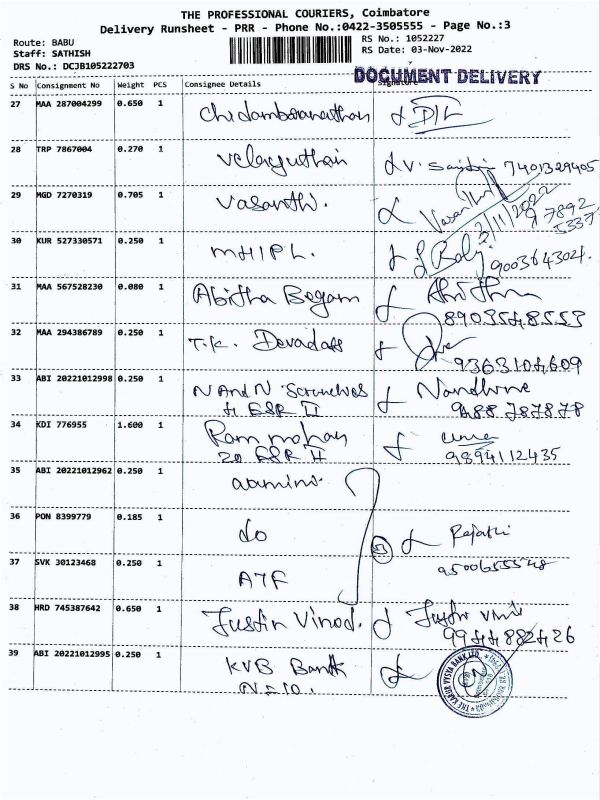 THE PROFESSIONAL COURIERS, Coimbatore
Delivery Runsheet - PRR - Phone No.:0422-3505555 - Page No.:3
Route: BABU
Staff: SATHISH
DRS No.: DCJB105222703
RS No.: 1052227
RS Date: 03-Nov-2022
DOCUMENT DELIVERY
S No Consignment No Weight PCS Consignee Details Signature
27 MAA 287004299 0.650 1 Chidambaranathan
28 TRP 7867004 0.270 1 Velayuthan 7401329405
29 MGD 7270319 0.705 1 Vasanthi. Vasanthi 3/11/2022 97892
30 KUR 527330571 0.250 1 MHIPL. 9003643024.
31 MAA 567528230 0.080 1 Abitha Begam
8903548553
32 MAA 294386789 0.250 1 T.K. Devadass
9363104609
33 ABI 20221012998 0.250 1 N And N Nandhine
4 ESR II 9488 787878
34 KDI 776955 1.600 1 Ram mohan
20 ESR II 9894112435
35 ABI 20221012962 0.250 1
36 PON 8399779 0.185 1 do Rajathi
37 SVK 30123468 0.250 1 ATF 9500655548
38 HRD 745387642 0.650 1 Justin Vinod. Justin
9944882426
39 ABI 20221012995 0.250 1 KVB Bank
THE KARUR VYSYA BANK LTD.